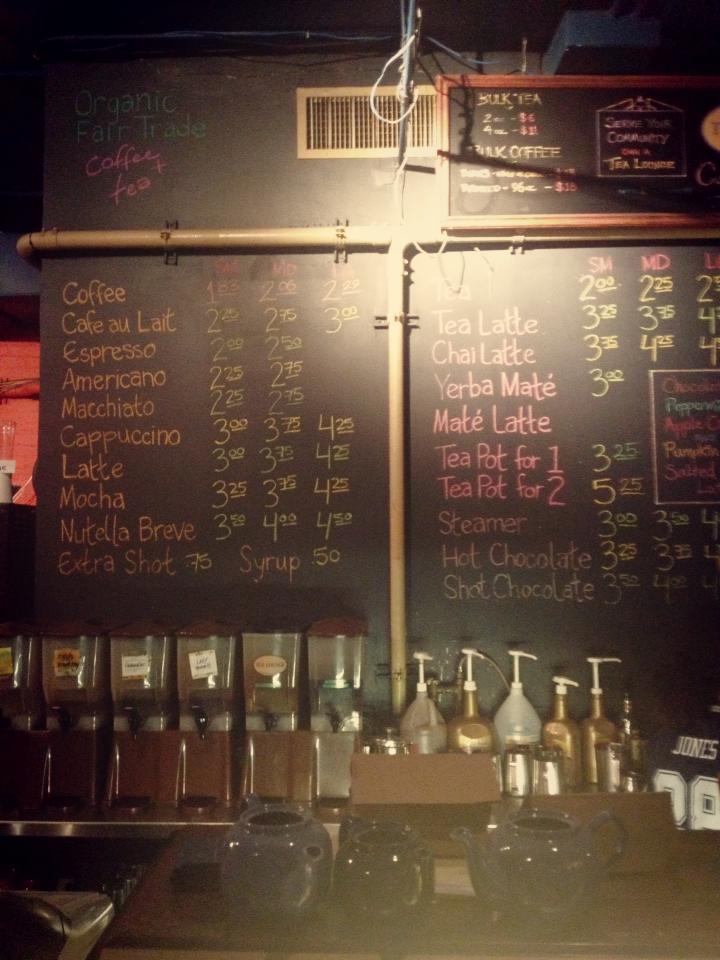 Organic
Fair Trade
Coffee +
tea
BULK TEA
2 oz - $6
4 oz - $11
BULK COFFEE
SERVE YOUR
COMMUNITY
OWN A
TEA LOUNGE
SM MD
Coffee 1.83 2.06 2.29
Cafe au Lait 2.25 2.75 3.00
Espresso 2.00 2.50
Americano 2.25 2.75
Macchiato 2.25 2.75
Cappuccino 3.00 3.75 4.25
Latte 3.00 3.75 4.25
Mocha 3.25 3.75 4.25
Nutella Breve 3.50 4.00 4.50
Extra Shot .75 Syrup .50
SM MD
Tea 2.00 2.25
Tea Latte 3.25 3.75
Chai Latte 3.75 4.25
Yerba Maté 3.00
Maté Latte
Tea Pot for 1 3.25
Tea Pot for 2 5.25
Steamer 3.00 3.50
Hot Chocolate 3.25 3.75
Shot Chocolate 3.50 4.00
JONES